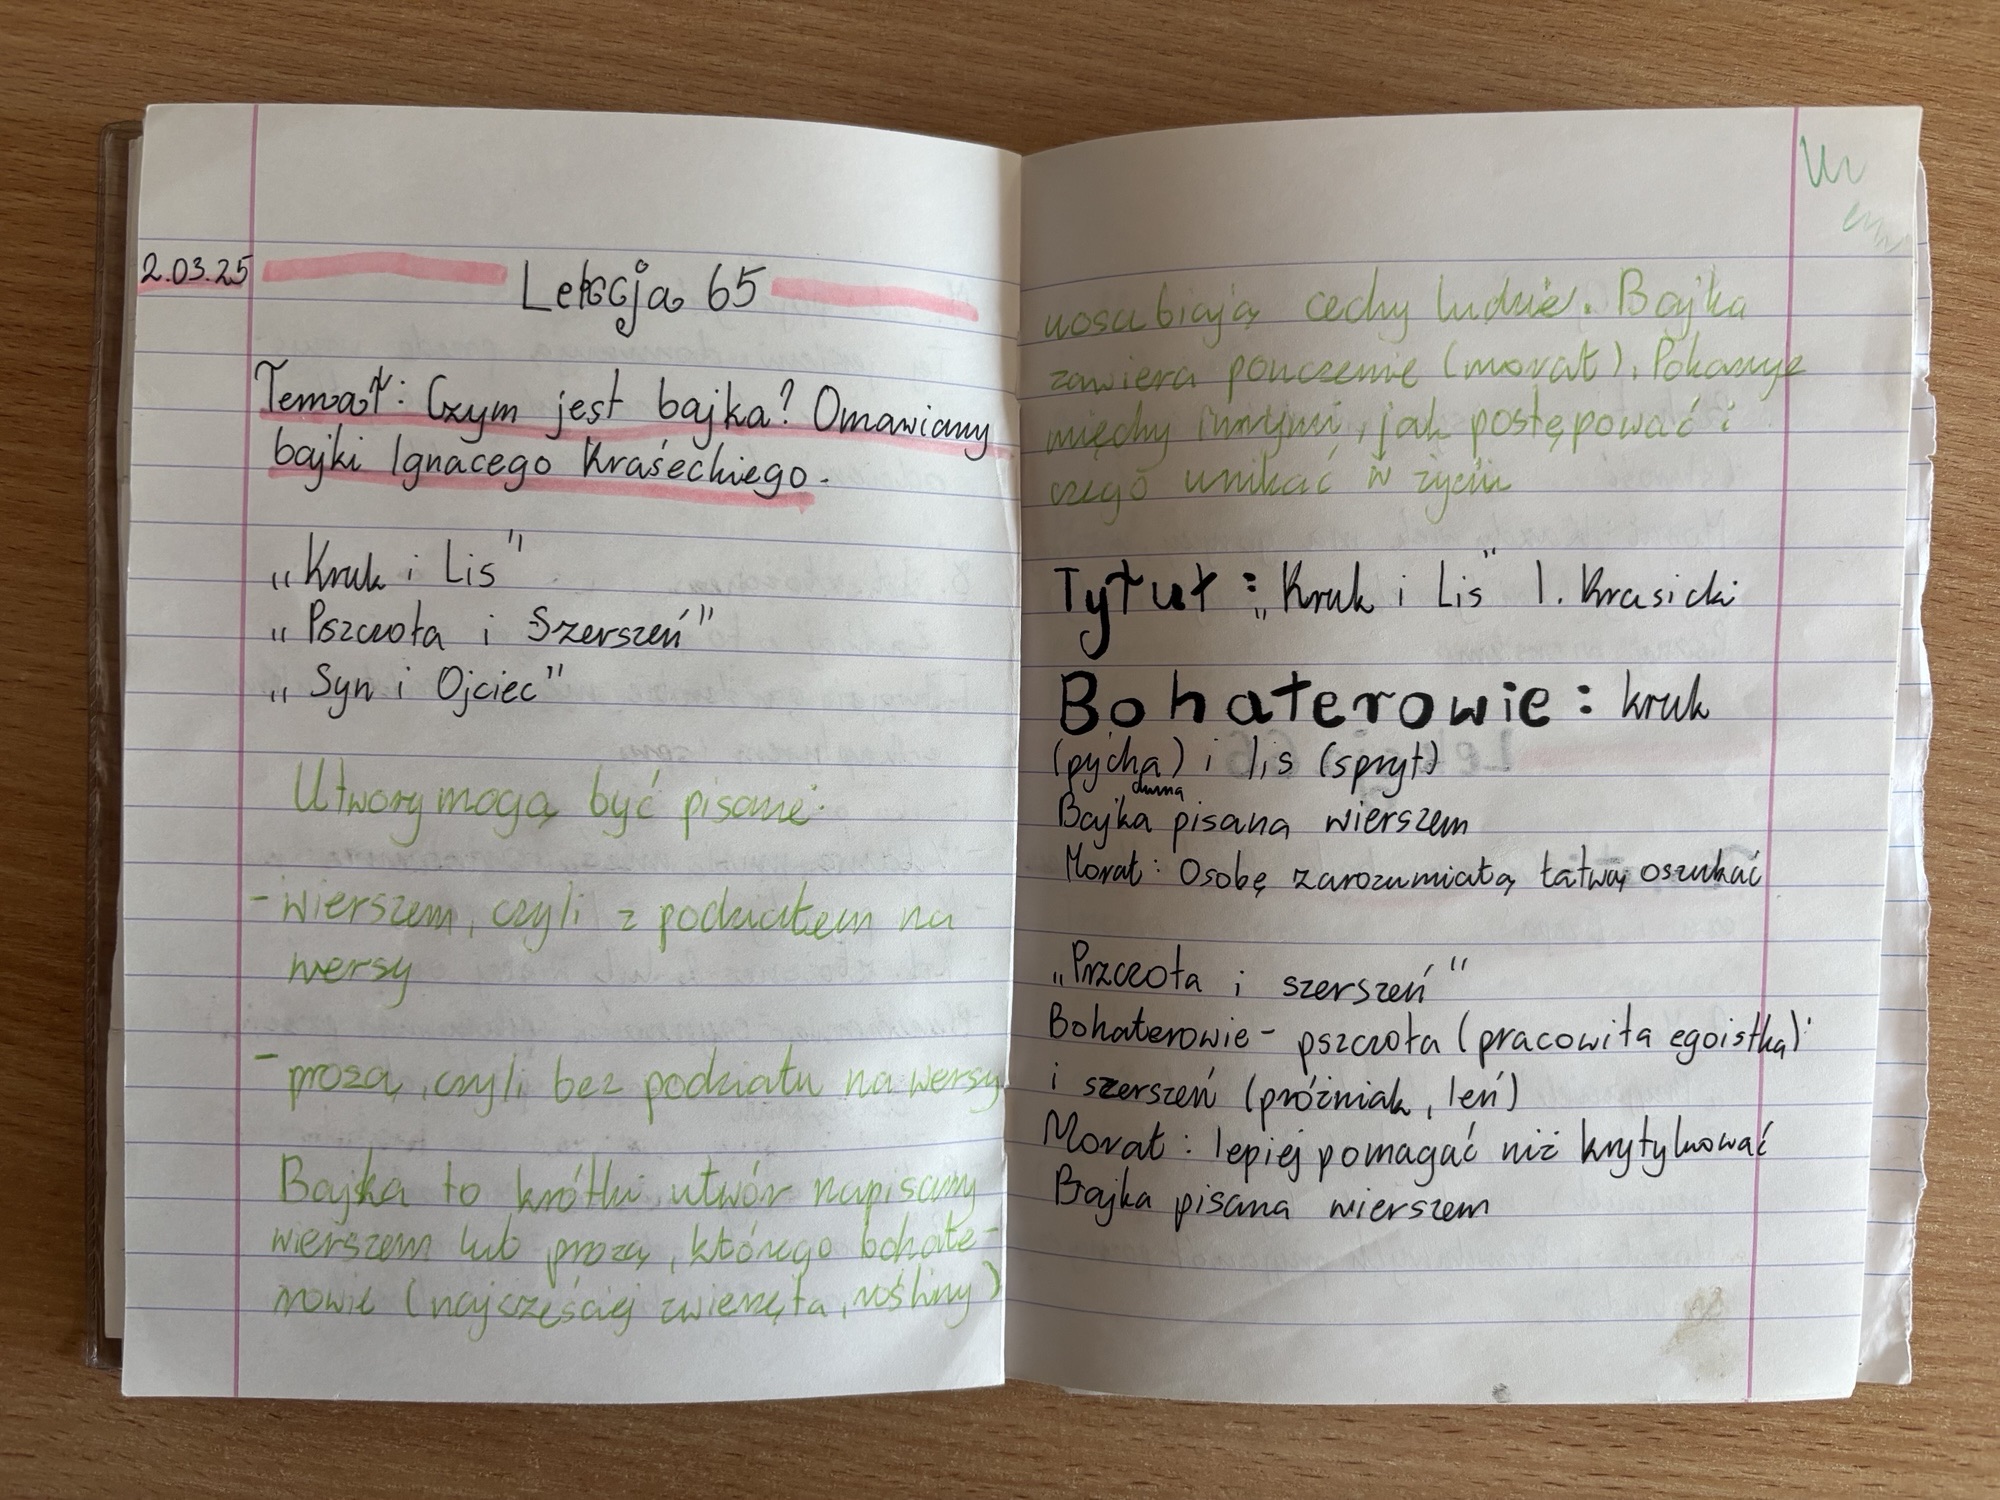 2.03.25
Lekcja 65
Temat: Czym jest bajka? Omawiamy
bajki Ignacego Kraśeckiego.
„Kruk i Lis"
„Pszczoła i Szerszeń"
„Syn i Ojciec"
Utwory mogą być pisane:
- wierszem, czyli z podziałem na
wersy
- prozą, czyli bez podziału na wersy
Bajka to krótki utwór napisany
wierszem lub prozą, którego bohate-
rowie (najczęściej zwierzęta, rośliny)
uosabiają cechy ludzie. Bajka
zawiera pouczenie (morał). Pokazuje
między innymi, jak postępować i
czego unikać w życiu
Tytuł: „Kruk i Lis" I. Krasicki
Bohaterowie: kruk
(pycha) i lis (spryt)
duma
Bajka pisana wierszem
Morał: Osobę zarozumiałą łatwą oszukać
„Przczoła i szerszeń"
Bohaterowie- pszczoła (pracowita egoistka)
i szerszeń (próżniak, leń)
Morał: lepiej pomagać niż krytykować
Bajka pisana wierszem